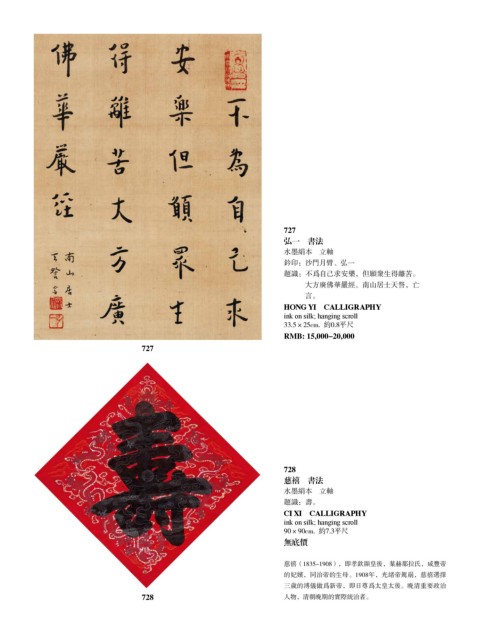 不為自己求
安樂但願眾生
得離苦大方廣
佛華嚴經
南山居士
727
727
弘一 書法
水墨絹本 立軸
鈐印：沙門月臂、弘一
題識：不爲自己求安樂，但願衆生得離苦。
大方廣佛華嚴經。南山居士天晳，亡
言。
HONG YI CALLIGRAPHY
ink on silk; hanging scroll
33.5 × 25cm. 約0.8平尺
RMB: 15,000–20,000
壽
728
728
慈禧 書法
水墨絹本 立軸
題識：壽。
CI XI CALLIGRAPHY
ink on silk; hanging scroll
90 × 90cm. 約7.3平尺
無底價
慈禧（1835–1908），即孝欽顯皇後，葉赫那拉氏，咸豐帝
的妃嬪，同治帝的生母。1908年，光緒帝駕崩，慈禧選擇
三歲的溥儀繼爲新帝，即日尊爲太皇太後。晚清重要政治
人物，清朝晚期的實際統治者。